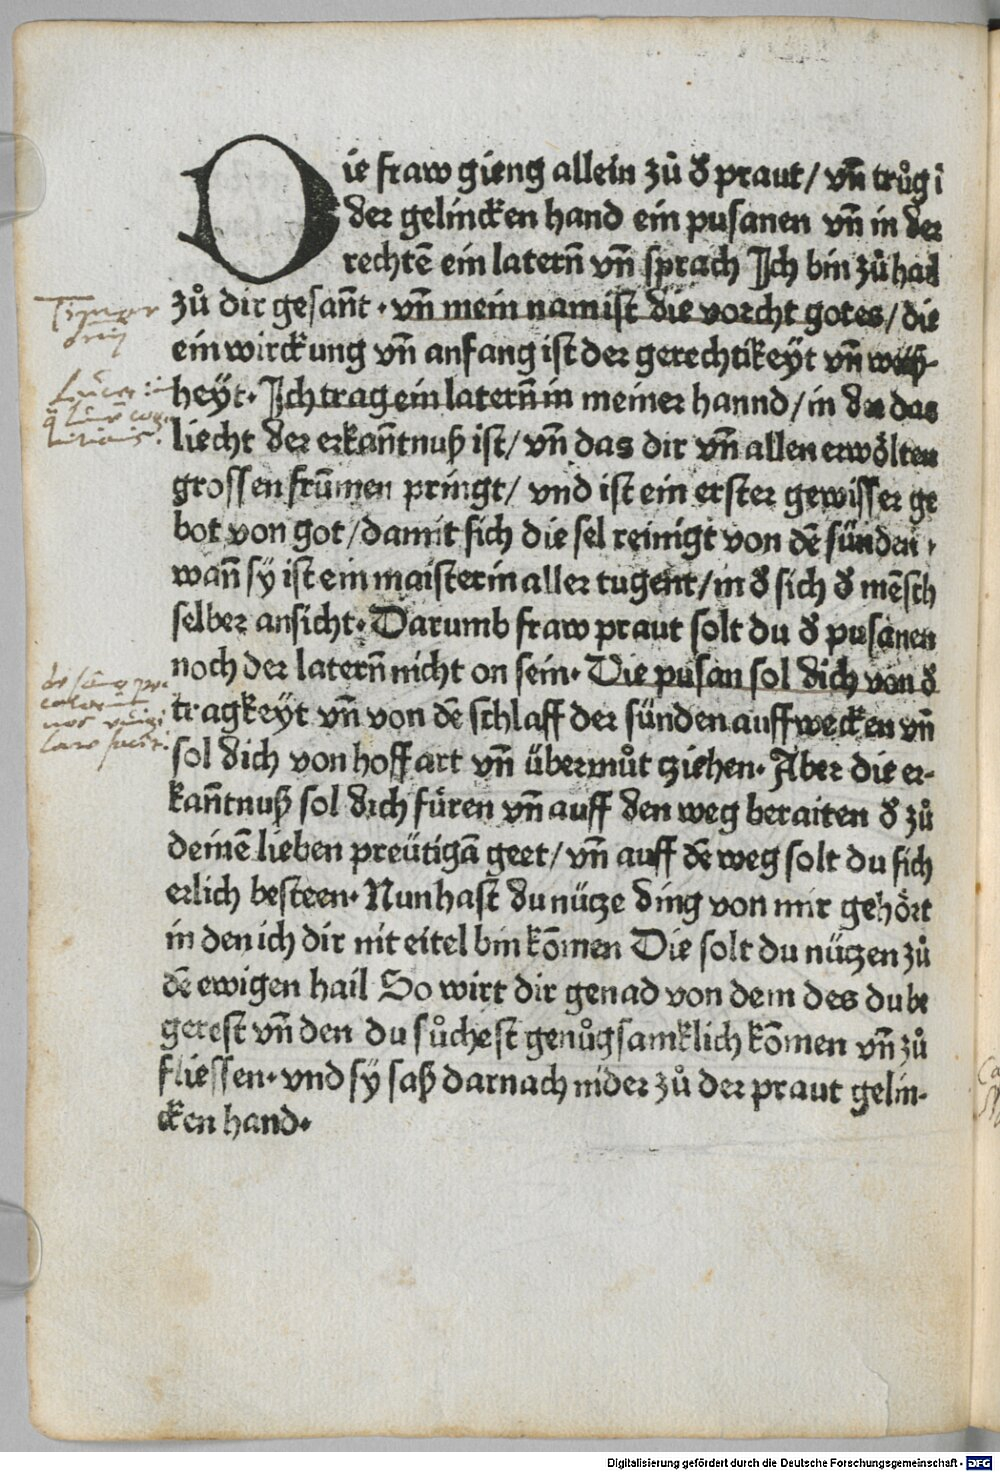 Die fraw gieng allein zů d̕ praut / vñ trůg ī
der gelincken hand ein pusanen vñ in der
rechtē ein laterñ vñ sprach Ich bin zů hail
zů dir gesañt · vñ mein nam ist die vorcht gotes / die
ein wirckung vñ anfang ist der gerechtikeyt vñ weiß-
heyt · Ich trag ein laterñ in meiner hannd / in der das
liecht der erkañtnuß ist / vñ das dir vñ allen erwölten
grossen frūmen pringt / vnd ist ein erster gewisser ge
bot von got / damit sich die sel reinigt von dē sünden ·
wañ sy ist ein maisterin aller tugent / in d̕ sich d̕ mēsch
selber ansicht · Darumb fraw praut solt du d̕ pusanen
noch der laterñ nicht on sein · Die pusan sol dich von d̕
tragkeyt vñ von dē schlaff der sünden auff wecken vñ
sol dich von hoffart vñ übermůt tziehen · Aber die er-
kañtnuß sol dich füren vñ auff den weg beraiten d̕ zů
deinē lieben preütigā geet / vñ auff dē weg solt du sich
erlich besteen · Nun hast du nütze ding von mir gehört
in den ich dir nit eitel bin kōmen Die solt du nützen zů
dē ewigen hail So wirt dir genad von dem des du be
gerest vñ den du sůchest genůgsamklich kōmen vñ zů
fliessen · vnd sÿ saß darnach nider zů der praut gelin-
cken hand ·
Digitalisierung gefördert durch die Deutsche Forschungsgemeinschaft - DFG